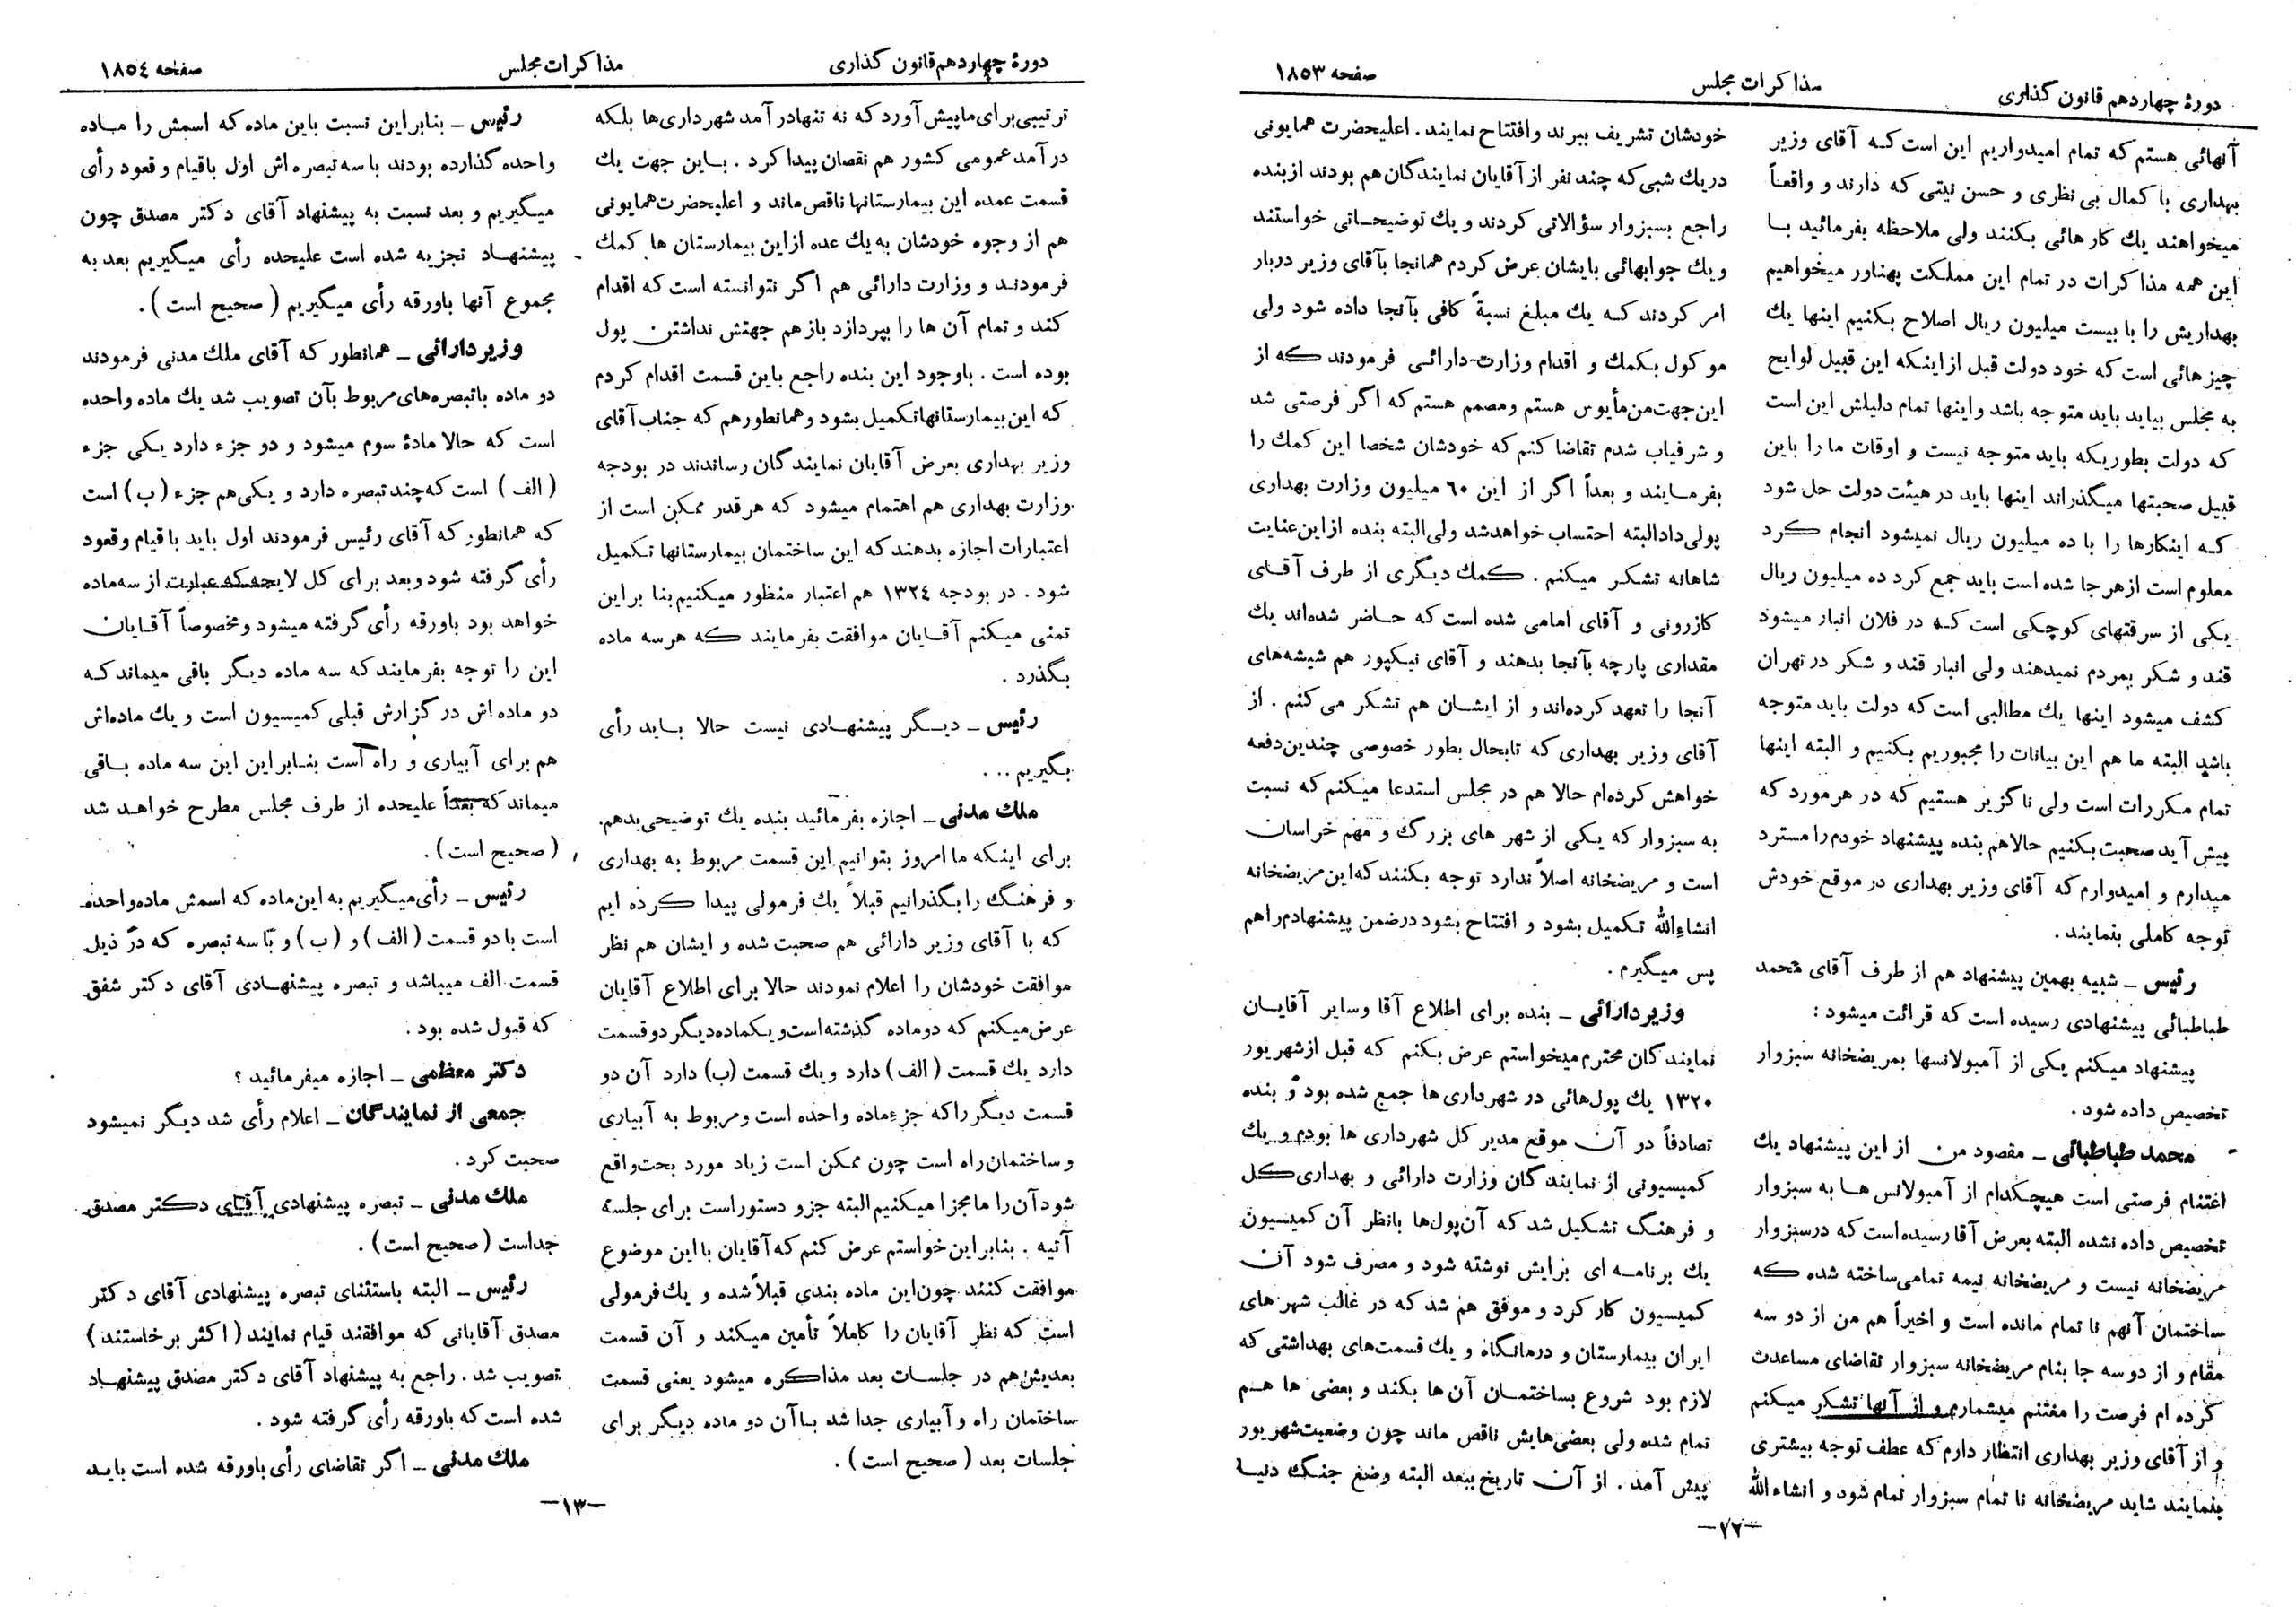 دورهٔ چهاردهم قانون گذاری
مذاکرات مجلس
صفحه ۱۸۵۳
آنهائی هستم که تمام امیدواریم این است که آقای وزیر
بهداری با کمال بی نظری و حسن نیتی که دارند و واقعاً
میخواهند یك کارهائی بکنند ولی ملاحظه بفرمائید با
این همه مذاکرات در تمام این مملکت پهناور میخواهیم
بهداریش را با بیست میلیون ریال اصلاح بکنیم اینها یك
چیزهائی است که خود دولت قبل از اینکه این قبیل لوایح
به مجلس بیاید باید متوجه باشد و اینها تمام دلیلش این است
که دولت بطوریکه باید متوجه نیست و اوقات ما را باین
قبیل صحبتها میگذراند اینها باید در هیئت دولت حل شود
که اینکارها را با ده میلیون ریال نمیشود انجام کرد
معلوم است از هر جا شده است باید جمع کرد ده میلیون ریال
یکی از سرقتهای کوچکی است که در فلان انبار میشود
قند و شکر بمردم نمیدهند ولی انبار قند و شکر در تهران
کشف میشود اینها یك مطالبی است که دولت باید متوجه
باشد البته ما هم این بیانات را مجبوریم بکنیم و البته اینها
تمام مکررات است ولی ناگزیر هستیم که در هر مورد که
پیش آید صحبت بکنیم حالا هم بنده پیشنهاد خودم را مسترد
میدارم و امیدوارم که آقای وزیر بهداری در موقع خودش
توجه کاملی بنمایند .
رئیس ـ شبیه بهمین پیشنهاد هم از طرف آقای محمد
طباطبائی پیشنهادی رسیده است که قرائت میشود :
پیشنهاد میکنم یکی از آمبولانسها بمریضخانه سبزوار
تخصیص داده شود .
محمد طباطبائی ـ مقصود من از این پیشنهاد یك
اغتنام فرصتی است هیچکدام از آمبولانس ها به سبزوار
تخصیص داده نشده البته بعرض آقا رسیده است که در سبزوار
مریضخانه نیست و مریضخانه نیمه تمامی ساخته شده که
ساختمان آنهم نا تمام مانده است و اخیراً هم من از دو سه
مقام و از دو سه جا بنام مریضخانه سبزوار تقاضای مساعدت
کرده ام فرصت را مغتنم میشمارم و از آنها تشکر میکنم
و از آقای وزیر بهداری انتظار دارم که عطف توجه بیشتری
بنمایند شاید مریضخانه نا تمام سبزوار تمام شود و انشاءالله
خودشان تشریف ببرند و افتتاح نمایند . اعلیحضرت همایونی
در یك شبی که چند نفر از آقایان نمایندگان هم بودند از بنده
راجع بسبزوار سؤالاتی کردند و یك توضیحاتی خواستند
و یك جوابهائی بایشان عرض کردم همانجا بآقای وزیر دربار
امر کردند که یك مبلغ نسبةً کافی بآنجا داده شود ولی
موکول بکمك و اقدام وزارت دارائی فرمودند که از
این جهت من مأیوس هستم و مصمم هستم که اگر فرصتی شد
و شرفیاب شدم تقاضا کنم که خودشان شخصا این کمك را
بفرمایند و بعداً اگر از این ۶۰ میلیون وزارت بهداری
پولی داد البته احتساب خواهد شد ولی البته بنده از این عنایت
شاهانه تشکر میکنم . کمك دیگری از طرف آقای
کازرونی و آقای امامی شده است که حاضر شده اند یك
مقداری پارچه بآنجا بدهند و آقای نیکپور هم شیشه های
آنجا را تعهد کرده اند و از ایشان هم تشکر می کنم . از
آقای وزیر بهداری که تابحال بطور خصوصی چندین دفعه
خواهش کرده ام حالا هم در مجلس استدعا میکنم که نسبت
به سبزوار که یکی از شهر های بزرگ و مهم خراسان
است و مریضخانه اصلاً ندارد توجه بکنند که این مریضخانه
انشاءالله تکمیل بشود و افتتاح بشود در ضمن پیشنهادم را هم
پس میگیرم .
وزیر دارائی ـ بنده برای اطلاع آقا و سایر آقایان
نمایندگان محترم میخواستم عرض بکنم که قبل از شهریور
۱۳۲۰ یك پول هائی در شهرداری ها جمع شده بود و بنده
تصادفاً در آن موقع مدیر کل شهرداری ها بودم و یك
کمیسیونی از نمایندگان وزارت دارائی و بهداری کل
و فرهنگ تشکیل شد که آن پول ها بانظر آن کمیسیون
یك برنامه ای برایش نوشته شود و مصرف شود آن
کمیسیون کار کرد و موفق هم شد که در غالب شهر های
ایران بیمارستان و درمانگاه و یك قسمت های بهداشتی که
لازم بود شروع بساختمان آن ها بکند و بعضی ها هم
تمام شده ولی بعضی هایش ناقص ماند چون وضعیت شهریور
پیش آمد . از آن تاریخ ببعد البته وضع جنگ دنیا
دورهٔ چهاردهم قانون گذاری
مذاکرات مجلس
صفحه ۱۸۵٤
ترتیبی برای ما پیش آورد که نه تنها در آمد شهرداری ها بلکه
درآمد عمومی کشور هم نقصان پیدا کرد . باین جهت یك
قسمت عمده این بیمارستانها ناقص ماند و اعلیحضرت همایونی
هم از وجوه خودشان به یك عده از این بیمارستان ها کمك
فرمودند و وزارت دارائی هم اگر نتوانسته است که اقدام
کند و تمام آن ها را بپردازد باز هم جهتش نداشتن پول
بوده است . باوجود این بنده راجع باین قسمت اقدام کردم
که این بیمارستانها تکمیل بشود و همانطور هم که جناب آقای
وزیر بهداری بعرض آقایان نمایندگان رساندند در بودجه
وزارت بهداری هم اهتمام میشود که هر قدر ممکن است از
اعتبارات اجازه بدهند که این ساختمان بیمارستانها تکمیل
شود . در بودجه ۱۳۲٤ هم اعتبار منظور میکنیم بنا براین
تمنی میکنم آقایان موافقت بفرمایند که هر سه ماده
بگذرد .
رئیس ـ دیگر پیشنهادی نیست حالا باید رأی
بگیریم ...
ملك مدنی ـ اجازه بفرمائید بنده یك توضیحی بدهم.
برای اینکه ما امروز بتوانیم این قسمت مربوط به بهداری
و فرهنگ را بگذرانیم قبلاً یك فرمولی پیدا کرده ایم
که با آقای وزیر دارائی هم صحبت شده و ایشان هم نظر
موافقت خودشان را اعلام نمودند حالا برای اطلاع آقایان
عرض میکنم که دو ماده گذشته است و یکماده دیگر دو قسمت
دارد یك قسمت (الف) دارد و یك قسمت (ب) دارد آن دو
قسمت دیگر را که جزء ماده واحده است و مربوط به آبیاری
و ساختمان راه است چون ممکن است زیاد مورد بحث واقع
شود آن را ما مجزا میکنیم البته جزو دستور است برای جلسه
آتیه . بنابراین خواستم عرض کنم که آقایان با این موضوع
موافقت کنند چون این ماده بندی قبلاً شده و یك فرمولی
است که نظر آقایان را کاملاً تأمین میکند و آن قسمت
بعدیش هم در جلسات بعد مذاکره میشود یعنی قسمت
ساختمان راه و آبیاری جدا شد با آن دو ماده دیگر برای
جلسات بعد (صحیح است) .
رئیس ـ بنابراین نسبت باین ماده که اسمش را ماده
واحده گذارده بودند با سه تبصره اش اول باقیام و قعود رأی
میگیریم و بعد نسبت به پیشنهاد آقای دکتر مصدق چون
پیشنهاد تجزیه شده است علیحده رأی میگیریم بعد به
مجموع آنها باورقه رأی میگیریم (صحیح است) .
وزیر دارائی ـ همانطور که آقای ملك مدنی فرمودند
دو ماده باتبصره های مربوط بآن تصویب شد یك ماده واحده
است که حالا مادهٔ سوم میشود و دو جزء دارد یکی جزء
(الف) است که چند تبصره دارد و یکی هم جزء (ب) است
که همانطور که آقای رئیس فرمودند اول باید باقیام و قعود
رأی گرفته شود و بعد برای کل لایحه که عبارت از سه ماده
خواهد بود باورقه رأی گرفته میشود و مخصوصاً آقایان
این را توجه بفرمایند که سه ماده دیگر باقی میماند که
دو ماده اش در گزارش قبلی کمیسیون است و یك ماده اش
هم برای آبیاری و راه است بنابراین این سه ماده باقی
میماند که بعداً علیحده از طرف مجلس مطرح خواهد شد
(صحیح است) .
رئیس ـ رأی میگیریم به این ماده که اسمش ماده واحده
است با دو قسمت (الف) و (ب) و با سه تبصره که در ذیل
قسمت الف میباشد و تبصره پیشنهادی آقای دکتر شفق
که قبول شده بود .
دکتر معظمی ـ اجازه میفرمائید ؟
جمعی از نمایندگان ـ اعلام رأی شد دیگر نمیشود
صحبت کرد .
ملك مدنی ـ تبصره پیشنهادی آقای دکتر مصدق
جداست (صحیح است) .
رئیس ـ البته باستثنای تبصره پیشنهادی آقای دکتر
مصدق آقایانی که موافقند قیام نمایند (اکثر برخاستند)
تصویب شد . راجع به پیشنهاد آقای دکتر مصدق پیشنهاد
شده است که باورقه رأی گرفته شود .
ملك مدنی ـ اگر تقاضای رأی باورقه شده است باید
−۱۳−